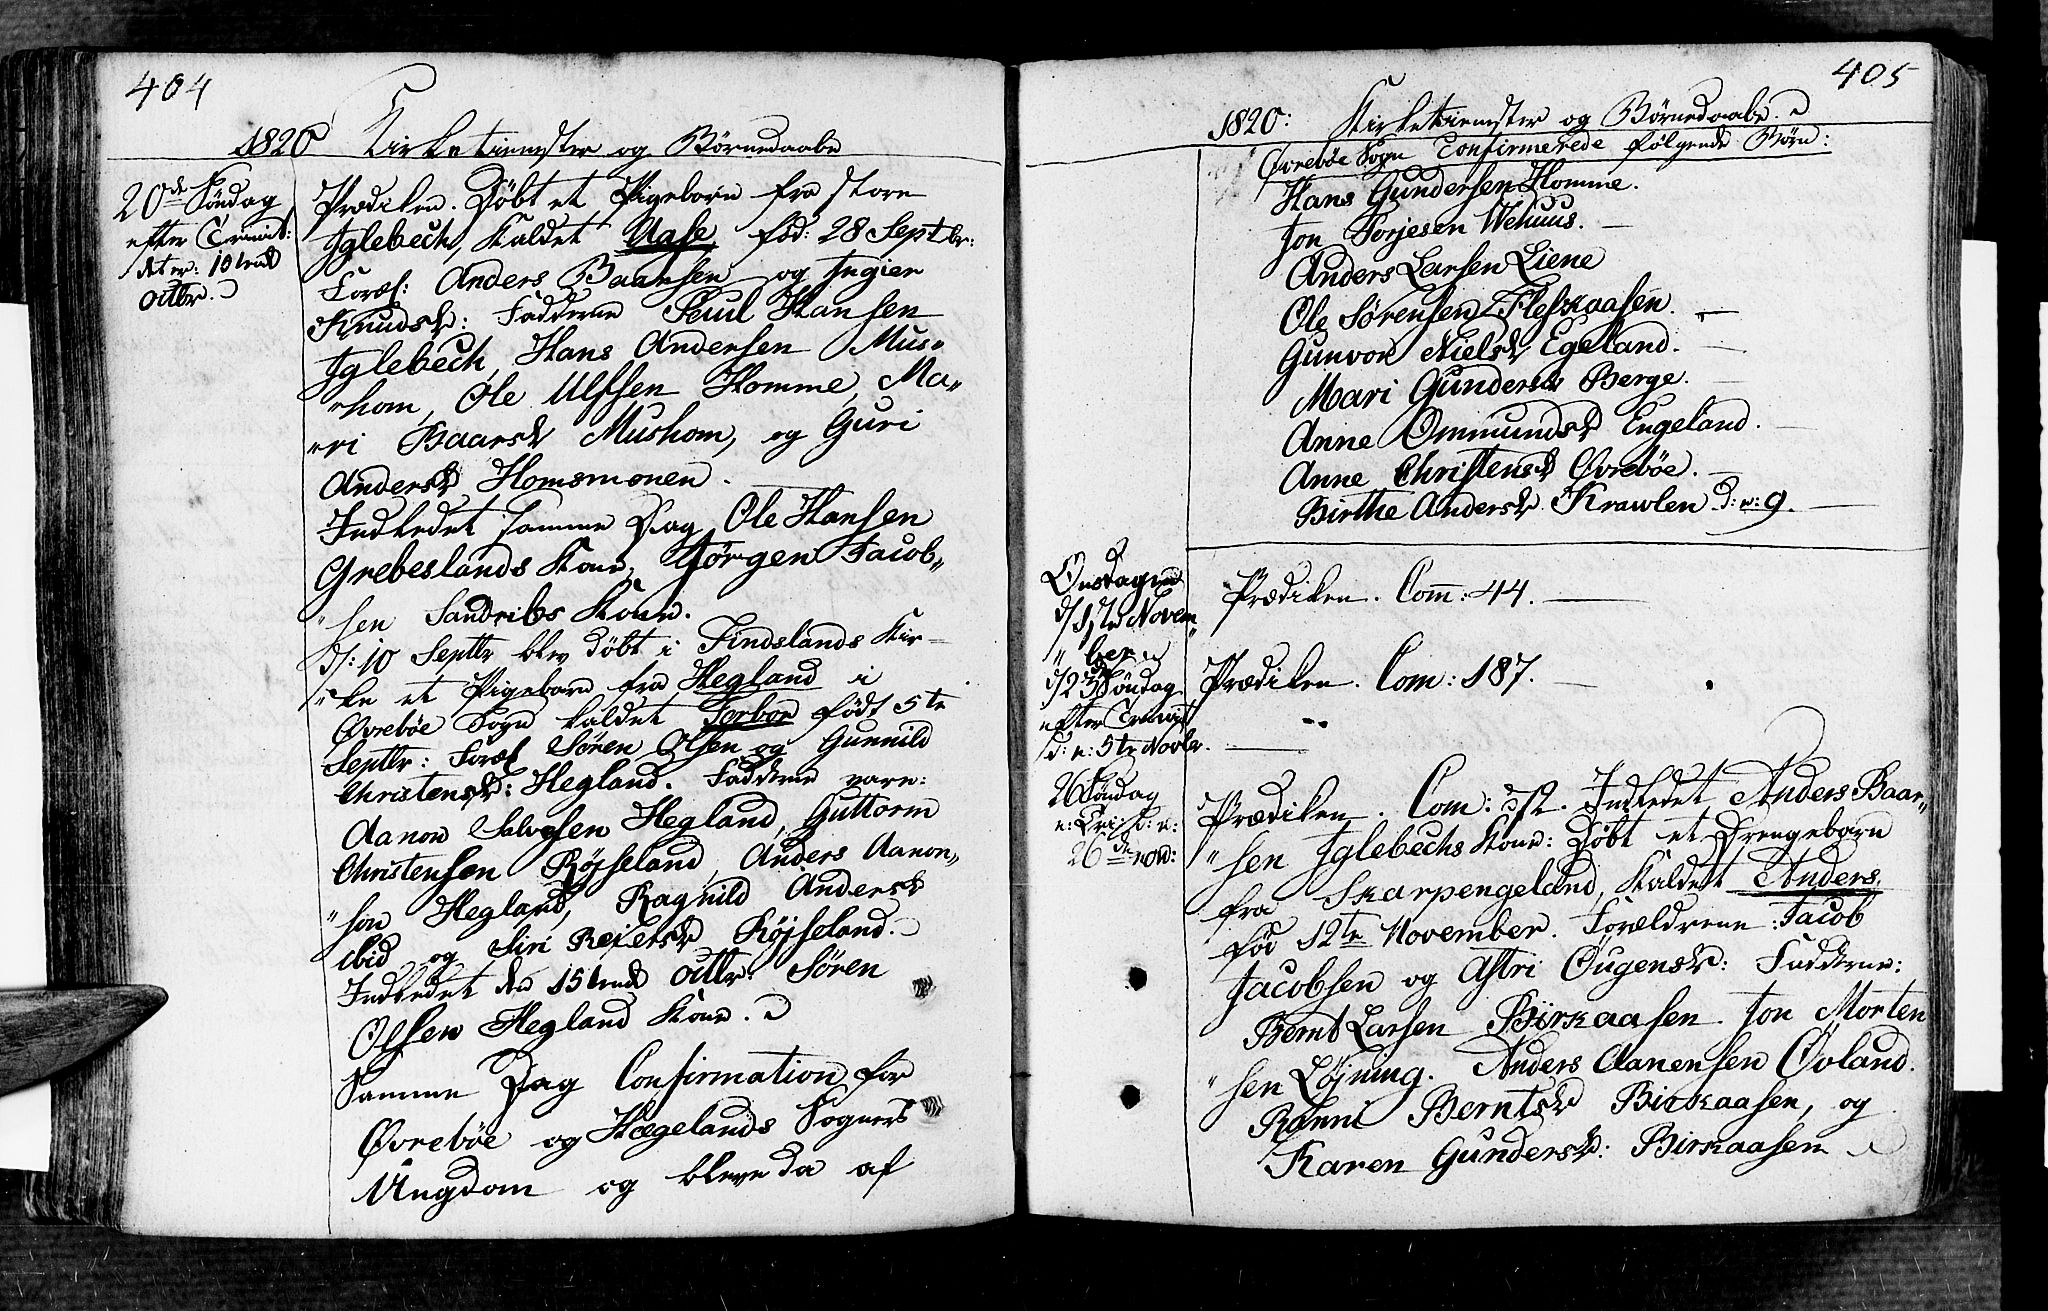 404
1820 Kirketienester og Børnedaabe
20de Söndag
efter Trinit:
det er: 10tende
Octbr.
Prædiken. Döbt et Pigebarn fra store
Iglebech, kaldet Aase föd: 28 Septbr:
Foræl: Anders Baarsen og Ingier
Knudsd: Fadderne Poul Hansen
Iglebech, Hans Andersen Mus-
"hom, Ole Ulfsen Homme, Ma-
"ri Baarsd Mushom, og Guri
Andersd Homsmonen.
Indledet samme Dag Ole Hansen
Grebeslands Kone, Jörgen Jacob-
"sen Sandribs Kone.
d: 10 Septbr blev döbt i Findslands Kir-
"ke et Pigebarn fra Hegland i
Øvrebøe Sogn kaldet Torbor födt 5te
Septbr: Foræl Sören Olsen og Gunnild
Christensd: Hegland. Fadderne vare:
Aanon Salvesen Hegland, Guttorm
Christensen Röjseland, Anders Aanon-
"sen Hegland, Ragnild Andersd
ibid og Siri Reiersd Röjseland.
Indledet den 15tende Octbr: Sören
Olsen Hegland Kone.
Samme Dag Confirmation for
Øvrebøe og Hægelands Sogners
Ungdom og bleve da af
405
1820: Kirketienester og Börnedaabe.
Øvrebøe Sogn Confirmerede følgende Börn:
Hans Gundersen Homme.
Jon Torjesen Wehuus.
Anders Larsen Liene
Ole Sörensen Fleskaasen.
Gunvor Nielsd Egeland.
Mari Gundersd Berge.
Anne Ommundsd Engeland.
Anne Christensd Øvrebøe.
Birthe Andersd Krawlen d: e: 9.
Onsdagen
d/ 1ste Novem-
"ber
Prædiken. Com: 44.
d/ 23 Söndag
efter Trinit
d: e: 5te Novbr.
Prædiken. Com: 187.
26 Söndag
e: Tri: d: e:
26de nov:
Prædiken. Com: Indledet Anders Baar-
"sen Iglebechs Kone: Döbt et Drengebarn
fra Skarpengeland, kaldet Anders
föd 12te November. Forældrene: Jacob
Jacobsen og Astri Øugensd: Fadderne:
Bernt Larsen Birkaasen. Jon Morten
"sen Löjning. Anders Aanensen Øvland.
Ranni Berntsd Birkaasen, og
Karen Gundersd: Birkaasen